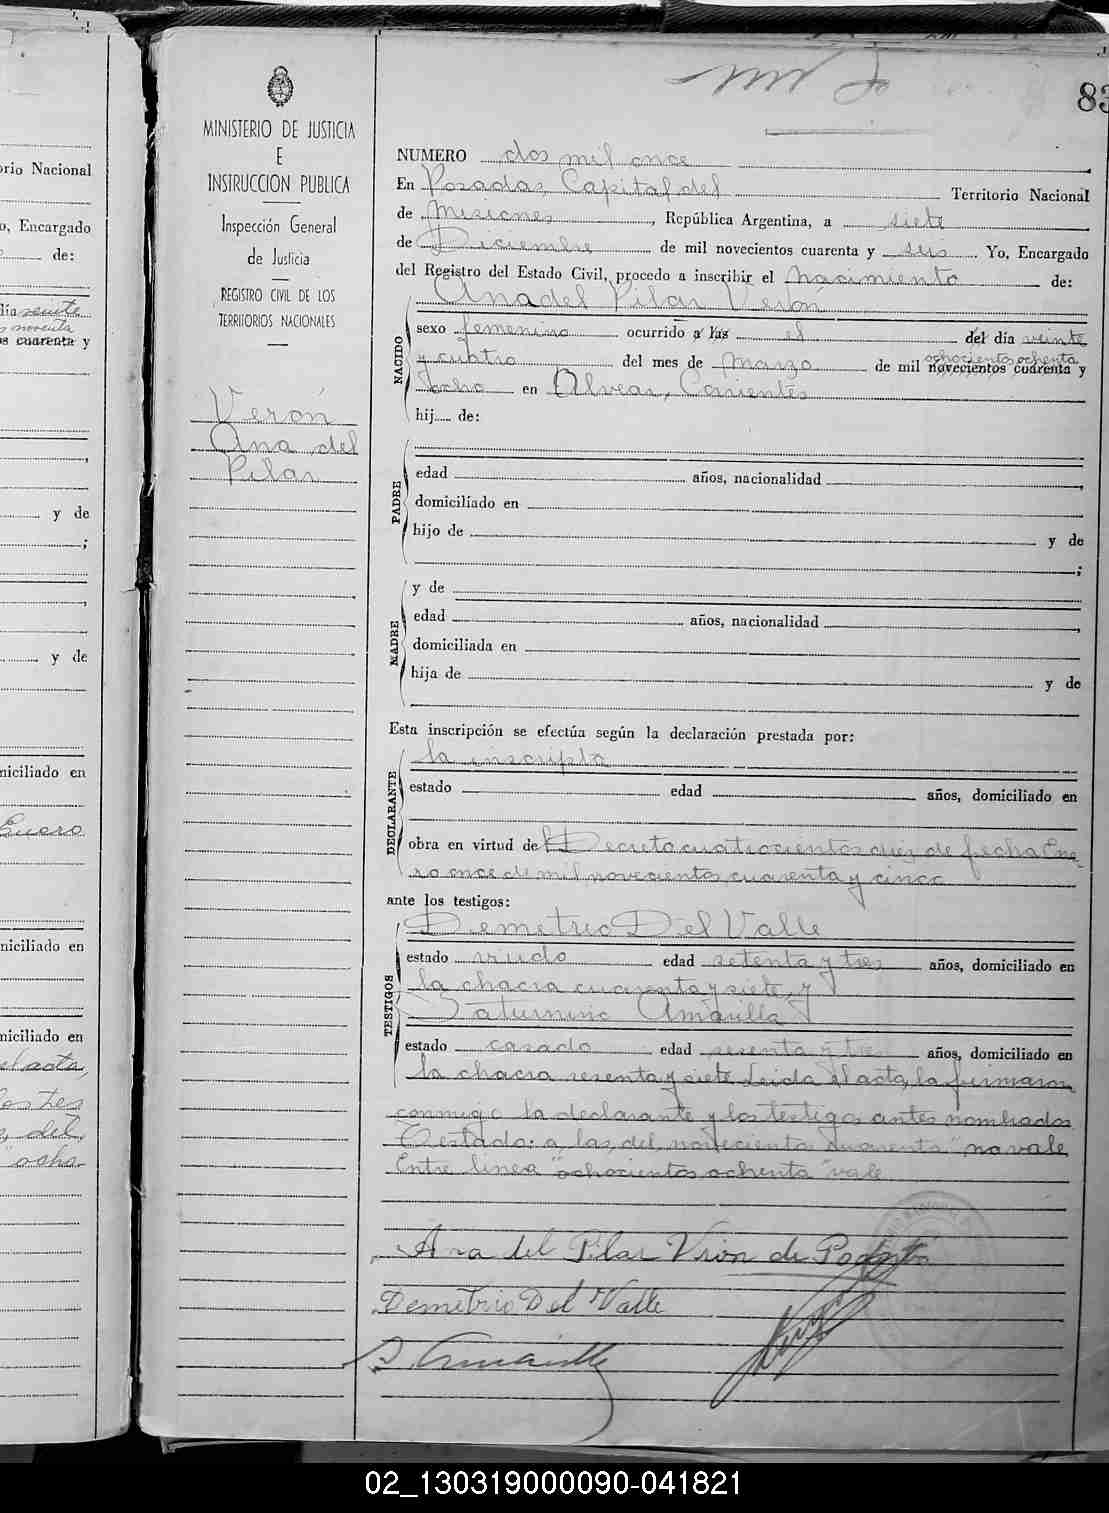 orio Nacional
o, Encargado
de:
día veinte
noventa
os cuarenta y
y de
;
,
y de
niciliado en
Enero
niciliado en
niciliado en
el acta,
del
ocho
83
MINISTERIO DE JUSTICIA
E
INSTRUCCION PUBLICA
Inspección General
de Justicia
REGISTRO CIVIL DE LOS
TERRITORIOS NACIONALES
Verón
Ana del
Pilar
NUMERO dos mil once
En Posadas, Capital del Territorio Nacional
de Misiones, República Argentina, a siete
de Diciembre de mil novecientos cuarenta y seis Yo, Encargado
del Registro del Estado Civil, procedo a inscribir el nacimiento de:
Ana del Pilar Verón
NACIDO
sexo femenino ocurrido a las el del día veinte
y cuatro del mes de Marzo de mil novecientos cuarenta y
ochocientos ochenta
ocho en Alvear, Corrientes
hij de:
PADRE
edad años, nacionalidad ,
domiciliado en
hijo de y de
;
MADRE
y de
edad años, nacionalidad ,
domiciliada en
hija de y de
Esta inscripción se efectúa según la declaración prestada por:
DECLARANTE
la inscripta
estado edad años, domiciliado en
obra en virtud del Decreto cuatrocientos diez de fecha Ene-
ro once de mil novecientos cuarenta y cinco
ante los testigos:
TESTIGOS
Demetrio Del Valle
estado viudo edad setenta y tres años, domiciliado en
la chacra cuarenta y siete, y
Saturnino Amarilla
estado casado edad sesenta y tres años, domiciliado en
la chacra sesenta y siete Leida el acta, la firmaron
conmigo la declarante y los testigos antes nombrados
Testado: a las, del, novecientos cuarenta" no vale
Entre linea "ochocientos ochenta" vale
Ana del Pilar Viron de
Demetrio Del Valle
S. Amarilla
02_130319000090-041821